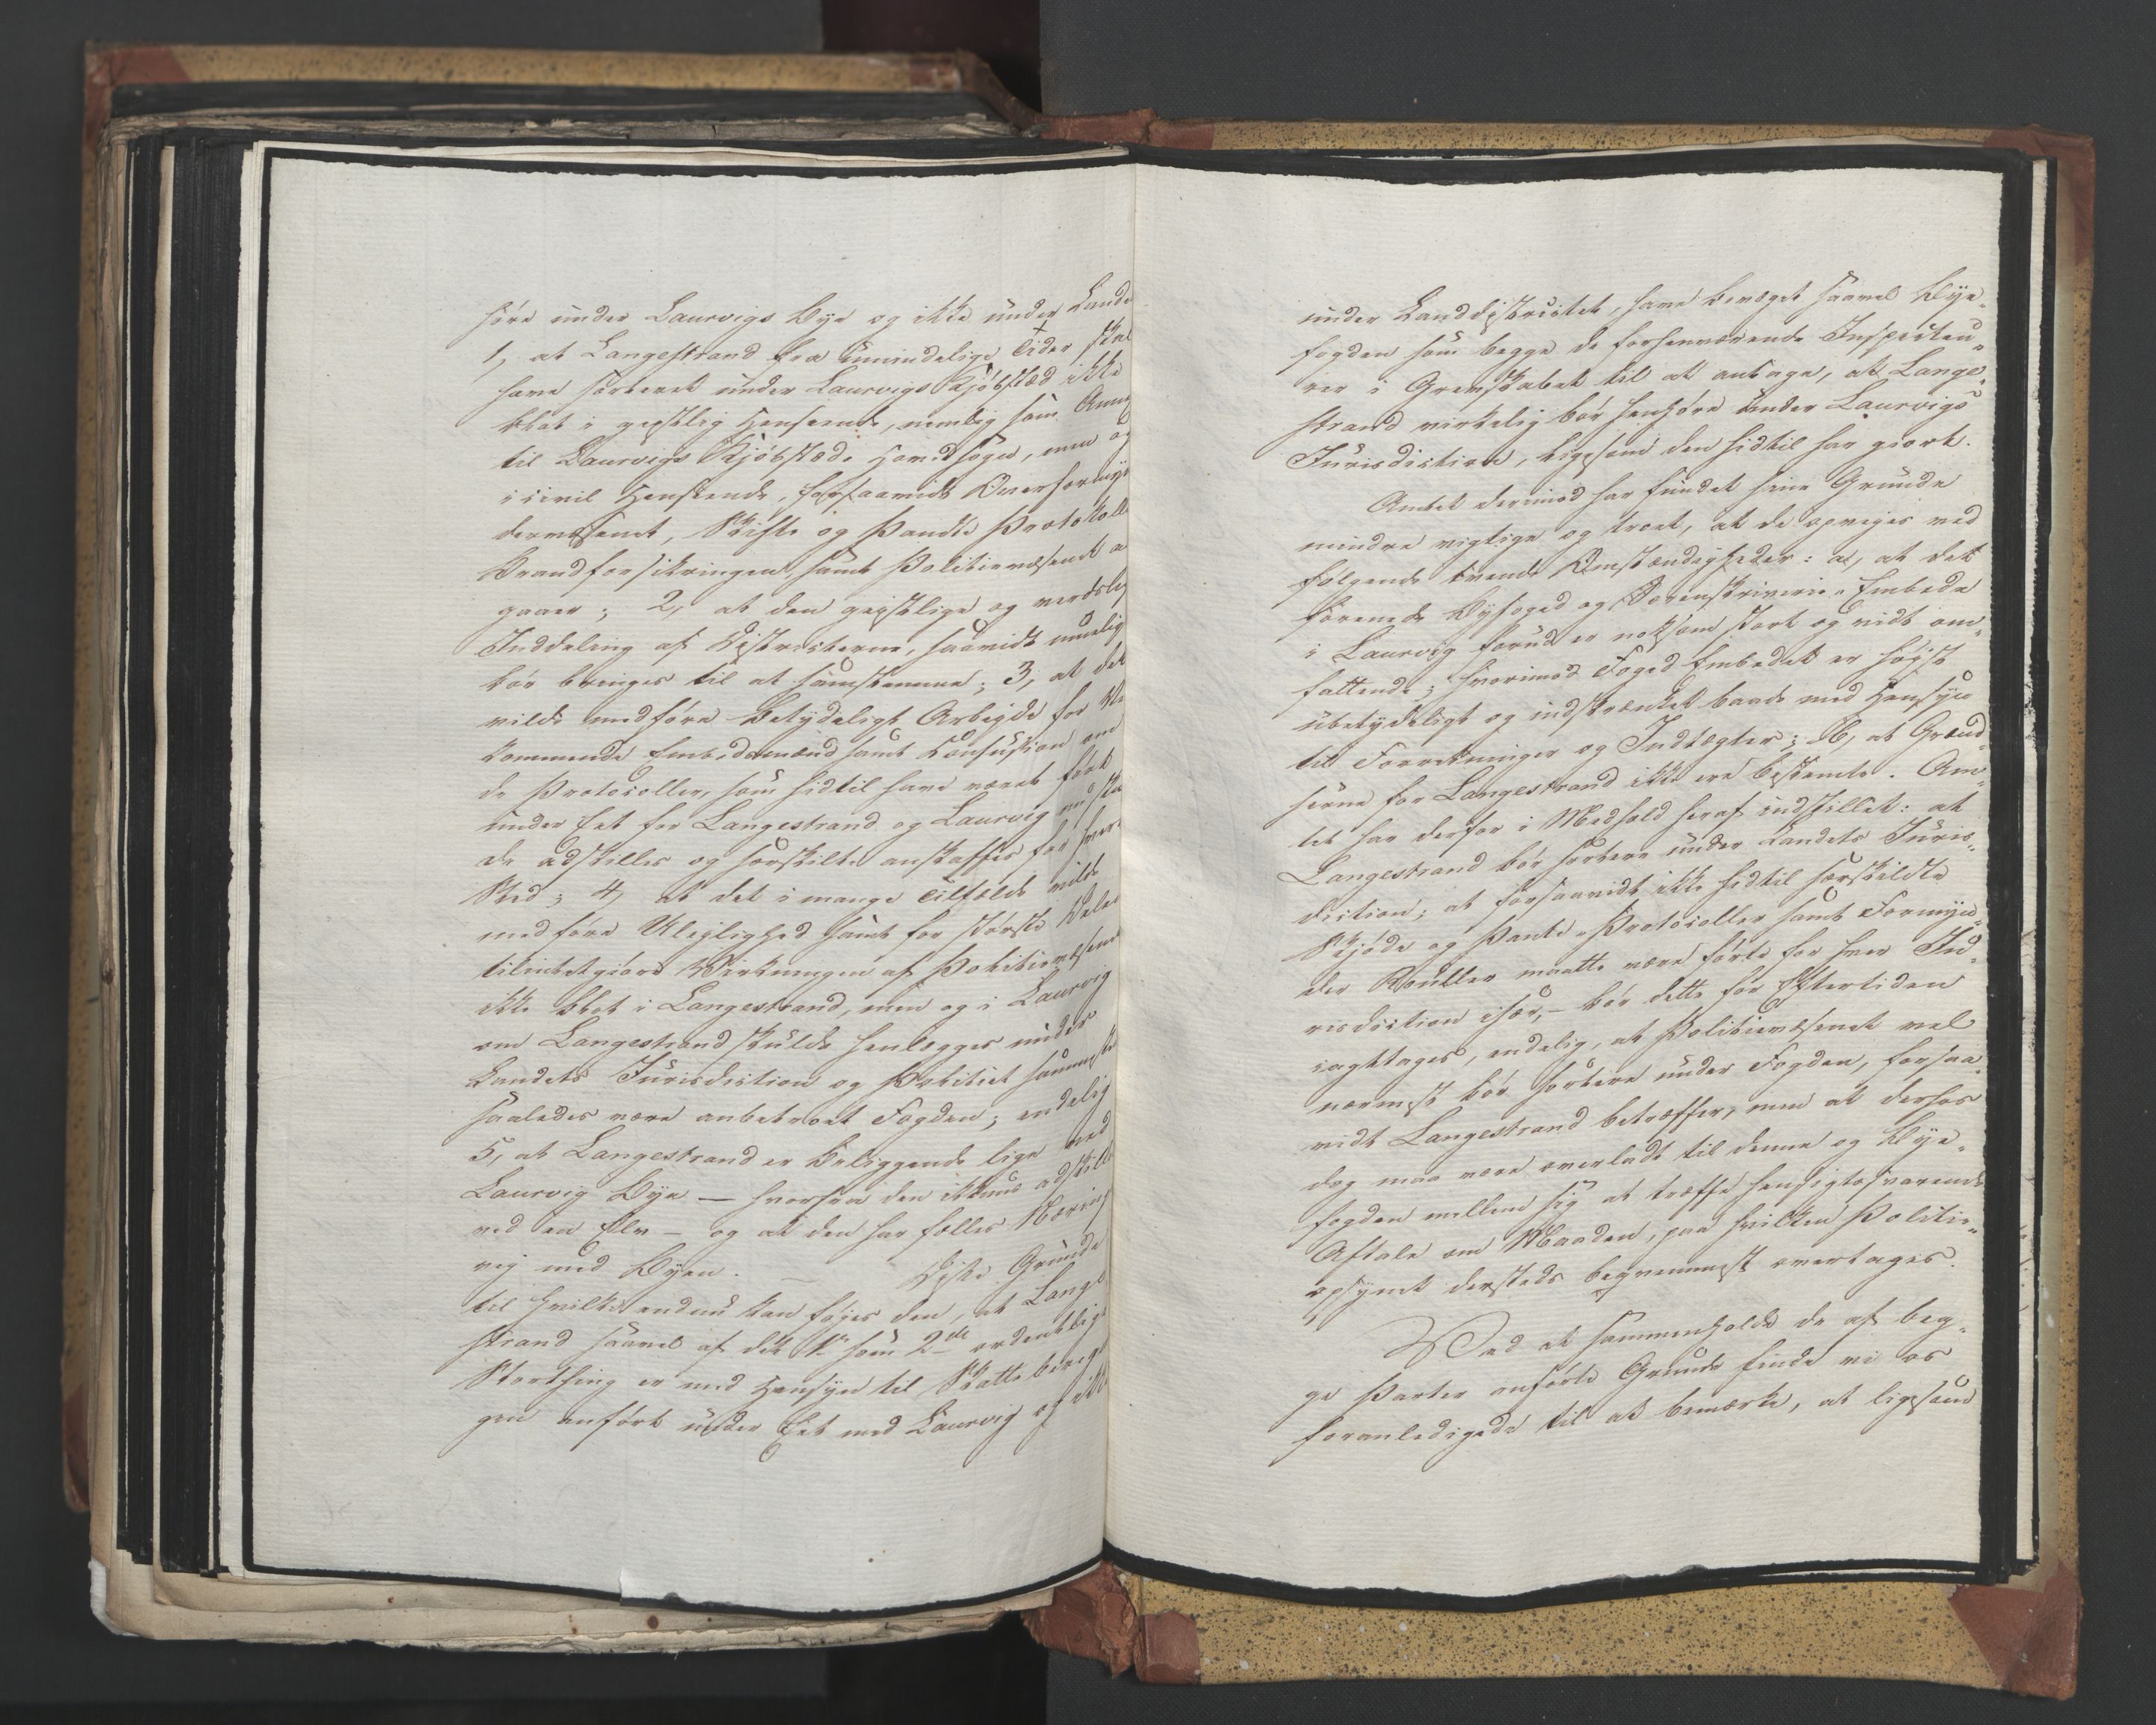 høre under Laurvigs Bye og ikke under Lande
1, at Langestrand fra umindelige Tider skal
have sorteret under Laurvigs Kjøbstæd ikke
blot i gejstlig Henseende, nemlig som Annex
til Laurvigs Kjøbstæds Hovedsogn, men og
i civil Henseende, forsaavidt Overformyn
dervæsenet, Skifte og Pante Protokolle
Brandforsikringen, samt Politievæsenet a
gaaer; 2, at den gejstlige og verdslig
Inddeling af Districterne, saavidt muelig
bør bringes til at samstemme; 3, at det
vilde medføre betydeligt Arbejde for Ved
kommende Embedsmænd samt Confusion om
de Protocoller, som hidtil have været ført
under Eet for Langestrand og Laurvig nu skul
de adskilles og særskilte anskaffes for hvert
Sted; 4, at det i mange Tilfælde vilde
medføre Ulejlighed samt for største Delen
tilintetgjøre Virkningen af Politievæsenet
ikke blot i Langestrand, men og i Laurvig
om Langestrand skulde henlægges under
Landets Jurisdiction og Politiet sammesteds
saaledes være anbetroet Fogden; endelig
5, at Langestrand er beliggende lige ved
Laurvig Bye – hvorfra den ikkuns adskilles
ved en Elv – og at den har fælles Næring
vej med Byen. – Disse Grunde
til hvilke endnu kan føjes den, at Lange
strand saavel af det 1te som 2det ordentlige
Storthing er med Hensyn til Skatteberegnin
gen anført under Eet med Laurvig og ikke
under Landdistrictet, have bevæget saavel Bye-
fogden som begge de forhenværende Inspecteu-
rer i Grevskabet til at antage, at Lange-
strand virkelig bør henhøre under Laurvigs
Jurisdiction, ligesom den hidtil har gjort.
Amtet derimod har fundet hine Grunde
mindre vigtige og troet, at de opvejes ved
følgende tvende Omstændigheder: a, at det
forenede Byfoged og Sorenskriverie-Embede
i Laurvig forud er noksom stort og vidt om-
fattende; hvorimod Foged Embedet er højst
ubetydeligt og indskrænket baade med Hensyn
til Forretninger og Indtægter; b, at Grænd-
serne for Langestrand ikke ere bestemte. Am-
tet har derfor i Medhold heraf indstillet: at
Langestrand bør sortere under Landets Juris-
diction; at forsaavidt ikke hidtil særskildte
Skjøde og Pante-Protocoller samt Formyn-
der Rouller maatte være førte for hver Ju-
risdiction især, – bør dette for Eftertiden
iagttages, endelig, at Politievæsenet vel
nærmest bør sortere under Fogden, forsaa-
vidt Langestrand betræffer, men at derhos
dog maa være overladt til denne og Bye-
fogden mellem sig at træffe hensigtssvarende
Aftale om Maaden, paa hvilken Politie-
opsynet dersteds beqvemmest overtages.
Ved at sammenholde de af beg-
ge Parter anførte Grunde finde vi os
foranledigede til at bemærke, at ligesom